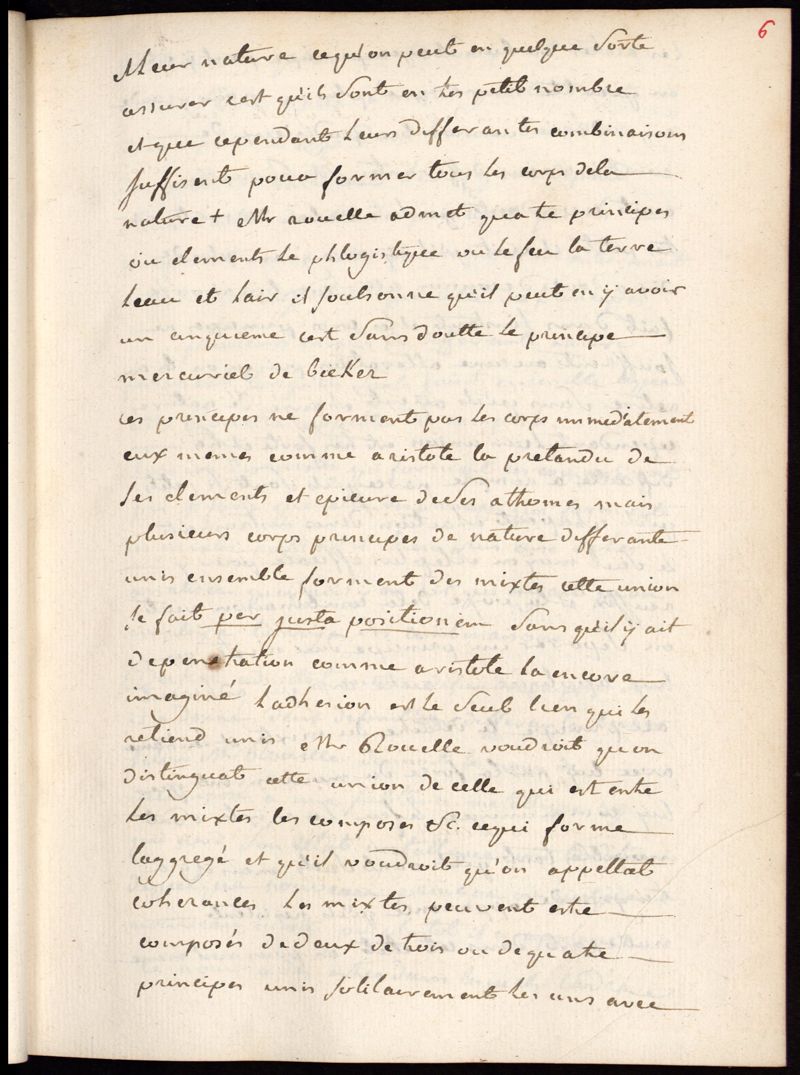 6
leur nature cequ'on peut en quelque sorte
assurer cest qu'ils sont en tres petit nombre
et que cependant leurs differantes combinaisons
suffisent pour former tous les corps dela
nature + Mr rouelle admet quatre principes
ou elements le phlogistique ou le feu la terre
leau et lair il soubsonne qu'il peut en y avoir
un cinquieme cest sans doutte le principe
mercuriel de becker
ces principes ne forment pas les corps immediatement
eux memes comme aristote la pretandu de
ses elements et epicure de ses athomes mais
plusieurs corps principes de nature differante
unis ensemble forment des mixtes cette union
se fait per juxta positionem sans qu'il y ait
depenetration comme aristote la encore
imaginé ladhesion est le seul lien qui les
retiend unis Mr Rouelle voudroit qu'on
distinguat cette union de celle qui est entre
les mixtes les composes &c. cequi forme
laggregé et qu'il voudroit qu'on appellat
coherances les mixtes peuvent estre
composés de deux de trois ou de quatre
principes unis solitairement les uns avec